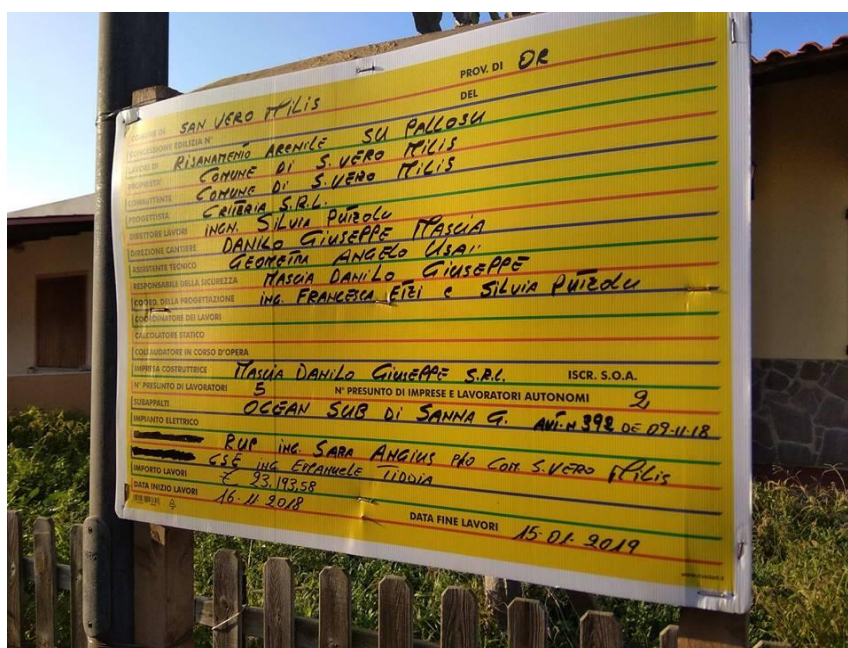 COMUNE IN SAN VERO MILIS PROV. DI OR
CONCESSIONE EDILIZIA N° DEL
LAVORI DI RISANAMENTO ARENILE SU PALLOSU
PROPRIETA' COMUNE DI S. VERO MILIS
COMMITTENTE COMUNE DI S. VERO MILIS
PROGETTISTA CRITERIA S.R.L.
DIRETTORE LAVORI INGN. SILVIA PUTZOLU
DIREZIONE CANTIERE DANILO GIUSEPPE MASCIA
ASSISTENTE TECNICO GEOMETRA ANGELO USAI
RESPONSABILE DELLA SICUREZZA MASCIA DANILO GIUSEPPE
COORD. DELLA PROGETTAZIONE ING. FRANCESCA ETZI e SILVIA PUTZOLU
COORDINATORE DEI LAVORI
CALCOLATORE STATICO
COLLAUDATORE IN CORSO D'OPERA
IMPRESA COSTRUTTRICE MASCIA DANILO GIUSEPPE S.R.L. ISCR. S.O.A.
N° PRESUNTO DI LAVORATORI 5 N° PRESUNTO DI IMPRESE E LAVORATORI AUTONOMI 2
SUBAPPALTI OCEAN SUB DI SANNA G. AUT. N 392 DE 09-11-18
IMPIANTO ELETTRICO
RUP ING. SARA ANGIUS P/O COM. S. VERO MILIS
CSE ING EMANUELE TIDDIA
IMPORTO LAVORI € 93.193,58
DATA INIZIO LAVORI 16-11-2018 DATA FINE LAVORI 15-01-2019